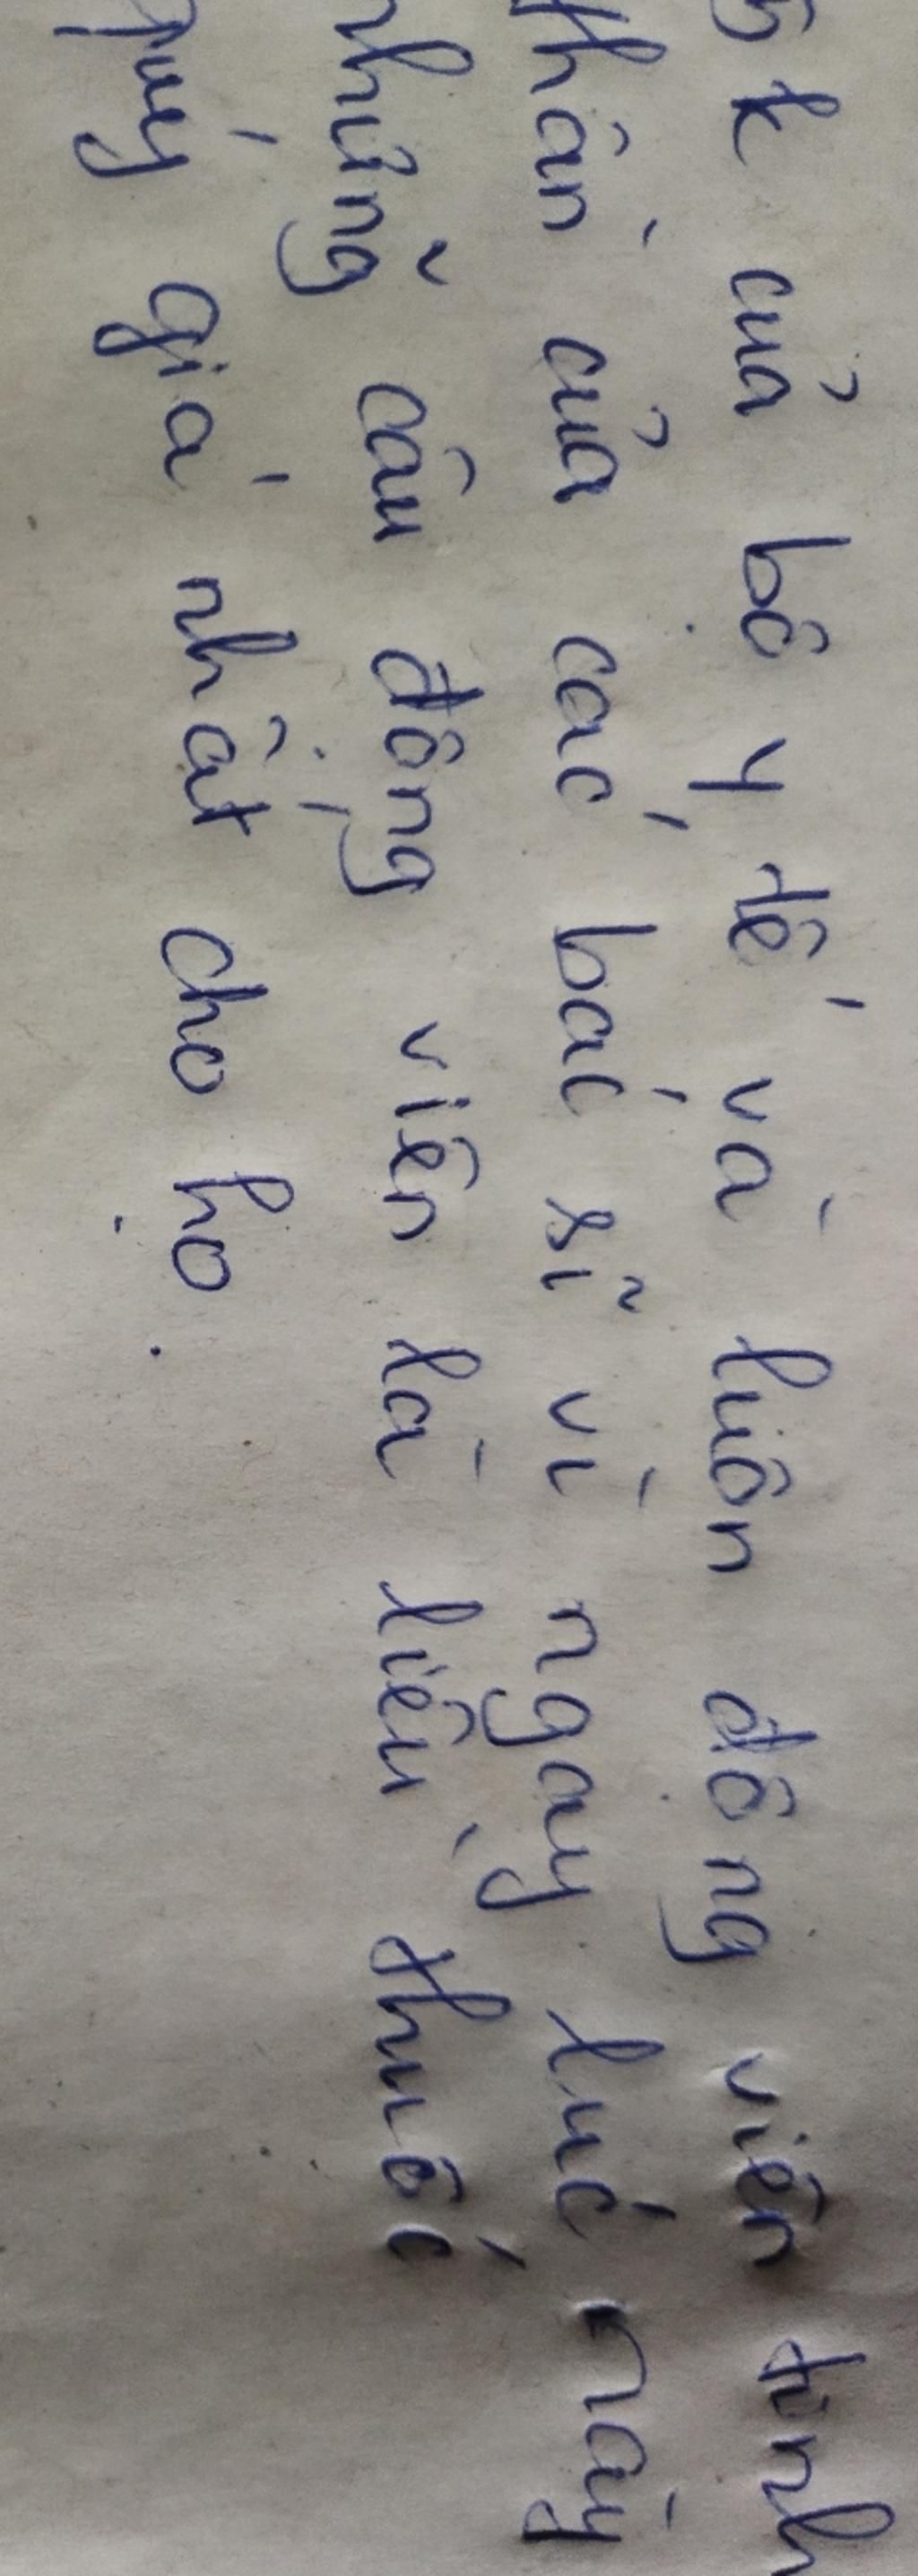 5k của bộ y tế và luôn động viên tinh
thần của các bác sĩ vì ngay lúc này
những câu động viên là liều thuốc
quý giá nhất cho họ.